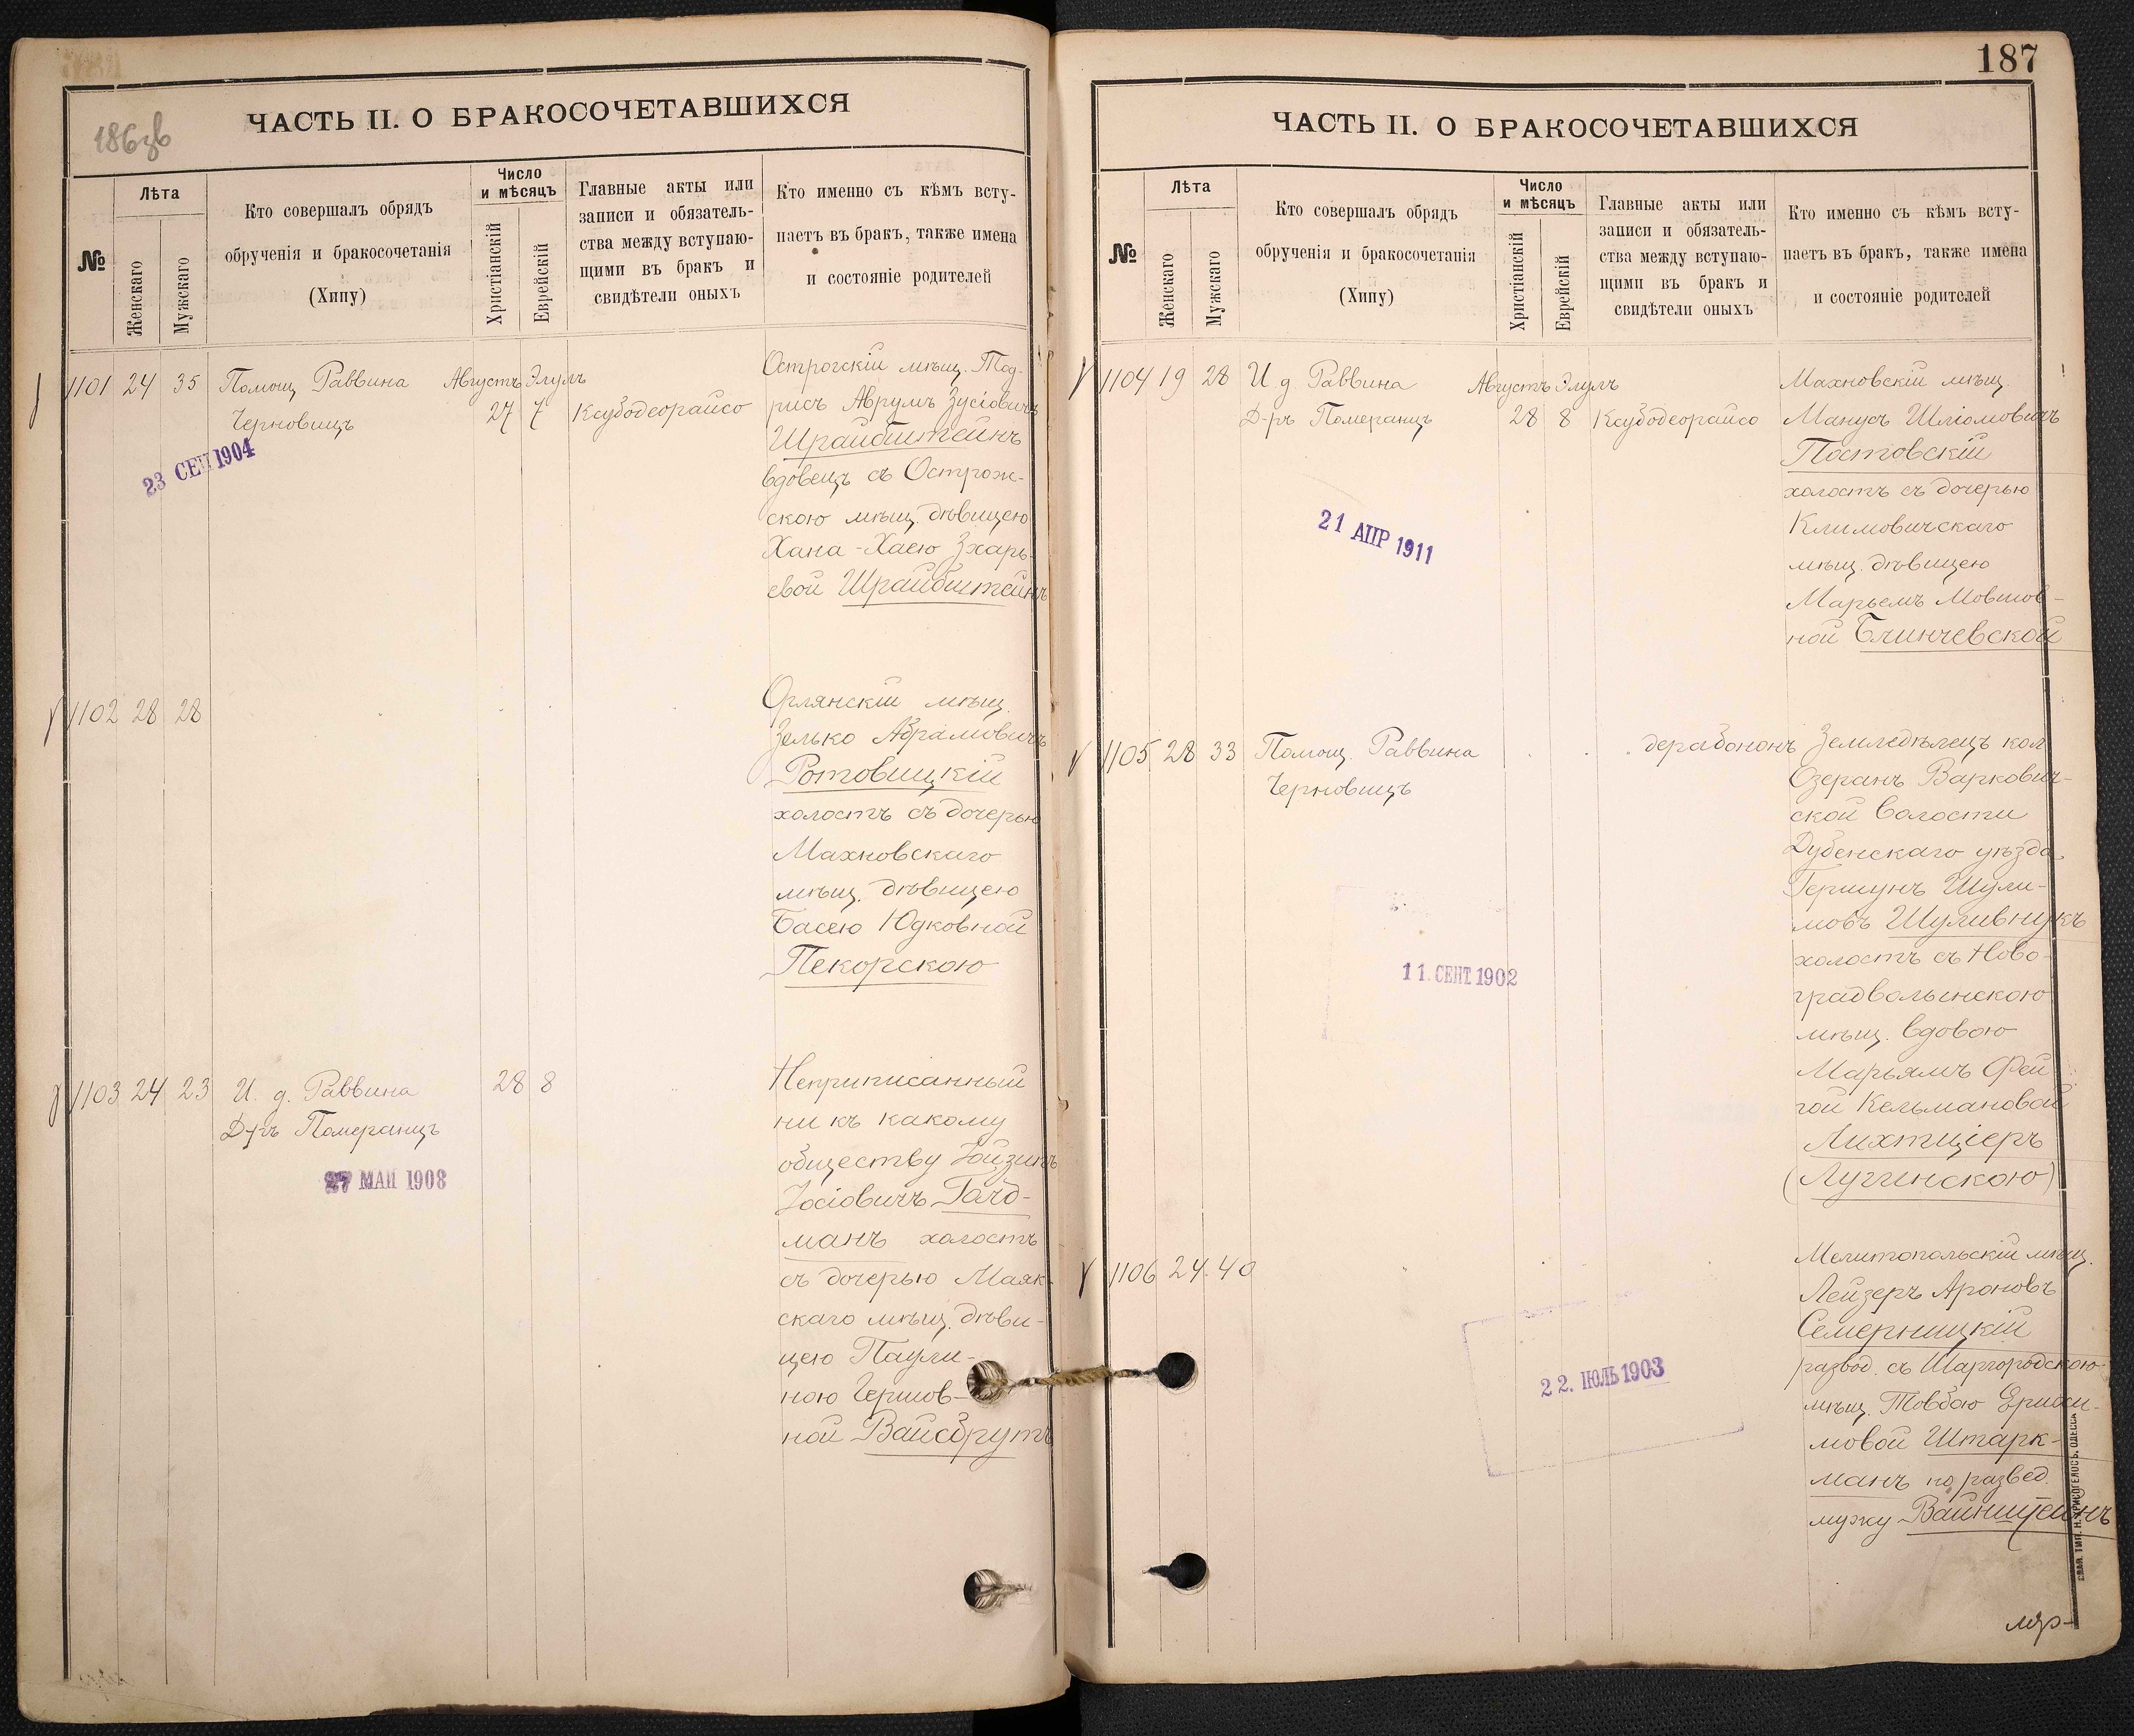 186об
ЧАСТЬ II. О БРАКОСОЧЕТАВШИХСЯ
№
Лѣта
Женскаго
Мужскаго
Кто совершалъ обрядъ
обрученія и бракосочетанія
(Хипу)
Число
и мѣсяцъ
Христіанскій
Еврейскій
Главные акты или
записи и обязатель-
ства между вступаю-
щими въ бракъ и
свидѣтели оныхъ
Кто именно съ кѣмъ всту-
паетъ въ бракъ, также имена
и состояніе родителей
1101 24 35
Помощ Раввина
Черновицъ
Августъ Элулъ
27 7
Ксубодеорайсо
Острогскій мѣщ. Тод-
рисъ Аврумъ Зусіовичъ
Шрайбштейнъ
вдовецъ съ Острож-
скою мѣщ. дѣвицею
Хана-Хаею Зхарь-
евой Шрайбштейнъ
23 СЕН 1904
1102 28 28
Орлянскій мѣщ.
Зелько Абрамовичъ
Ротовицкій
холостъ съ дочерью
Махновскаго
мѣщ. дѣвицею
Басею Юдковной
Пекорскою
1103 24 23
И. д. Раввина
Д-ръ Померанцъ
28 8
Неприписанный
ни къ какому
обществу Іойзипъ
Іосіовичъ Голд-
манъ холостъ
съ дочерью Маяк-
скаго мѣщ. дѣви-
цею Паули-
ною Гершов-
ной Вайсбрутъ
27 МАЙ 1908
187
ЧАСТЬ II. О БРАКОСОЧЕТАВШИХСЯ
№
Лѣта
Женскаго
Мужскаго
Кто совершалъ обрядъ
обрученія и бракосочетанія
(Хипу)
Число
и мѣсяцъ
Христіанскій
Еврейскій
Главные акты или
записи и обязатель-
ства между вступаю-
щими въ бракъ и
свидѣтели оныхъ
Кто именно съ кѣмъ всту-
паетъ въ бракъ, также имена
и состояніе родителей
1104 19 28
И д Раввина
Д-ръ Померанцъ
Августъ Элулъ
28 8
Ксубодеорайсо
Махновскій мѣщ.
Манусъ Шліомовичъ
Постовскій
холостъ съ дочерью
Климовичскаго
мѣщ. дѣвицею
Марьемъ Мовшов-
ной Блинчевской
21 АПР 1911
1105 28 33
Помощ. Раввина
Черновицъ
дерабононъ
Земледѣлецъ кол
ОзеранъВаркович-
ской волости
Дубенскаго уѣзда
Гершунъ Шули-
мовъ Шуливнукъ
холостъ съ Ново-
градволынскою
мѣщ. вдовою
Марьямъ Фей
гой Кельмановой
Лихтціеръ
(Лугинскою)
11. СЕНТ 1902
1106 24. 40
Мелитопольскій мѣщ.
Лейзеръ Ароновъ
Семерницкій
развод. съ Шаргородскою
мѣщ. Товбою
мовой Штарк-
манъ по развед.
мужу Вайнштейнъ
22. ІЮЛЬ 1903